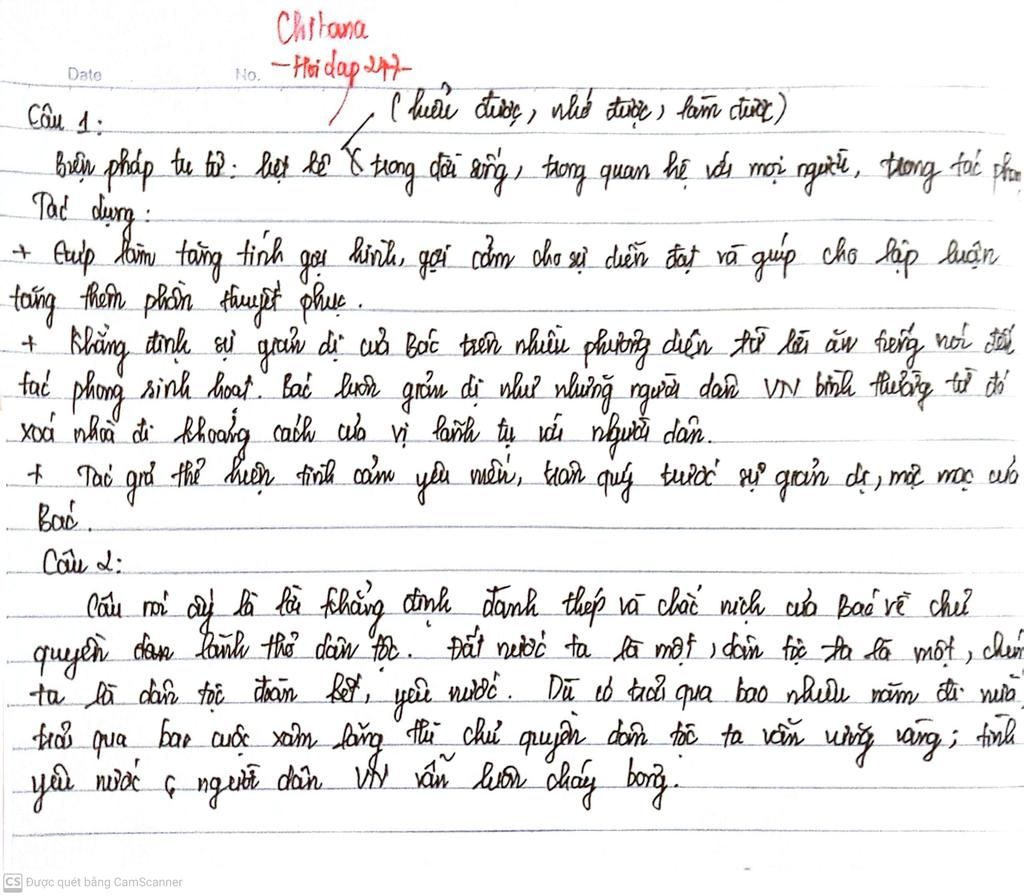 Chitana
Date No. -Hỏi đap 247-
(hiểu được, nhớ được, làm được)
Câu 1:
Biện pháp tu từ: liệt kê trong đời sống, trong quan hệ với mọi người, trong tác phẩm
Tác dụng:
+ Giúp làm tăng tính gợi hình, gợi cảm cho sự diễn đạt và giúp cho lập luận
tăng thêm phần thuyết phục.
+ Khẳng định sự giản dị của Bác trên nhiều phương diện từ lời ăn tiếng nói đến
tác phong sinh hoạt. Bác luôn giản dị như những người dân VN bình thường từ đó
xoá nhoà đi khoảng cách của vị lãnh tụ với người dân.
+ Tác giả thể hiện tình cảm yêu mến, trân quý trước sự giản dị, mộc mạc của
Bác.
Câu 2:
Câu nói ấy là lời khẳng định đanh thép và chắc nịch của Bác về chủ
quyền lãnh thổ dân tộc. Đất nước ta là một, dân tộc ta là một, chúng
ta là dân tộc đoàn kết, yêu nước. Dù có trải qua bao nhiêu năm đi nữa,
trải qua bao cuộc xâm lăng thì chủ quyền dân tộc ta vẫn vững vàng; tình
yêu nước ç người dân VN vẫn luôn cháy bỏng.
CS Được quét bằng CamScanner